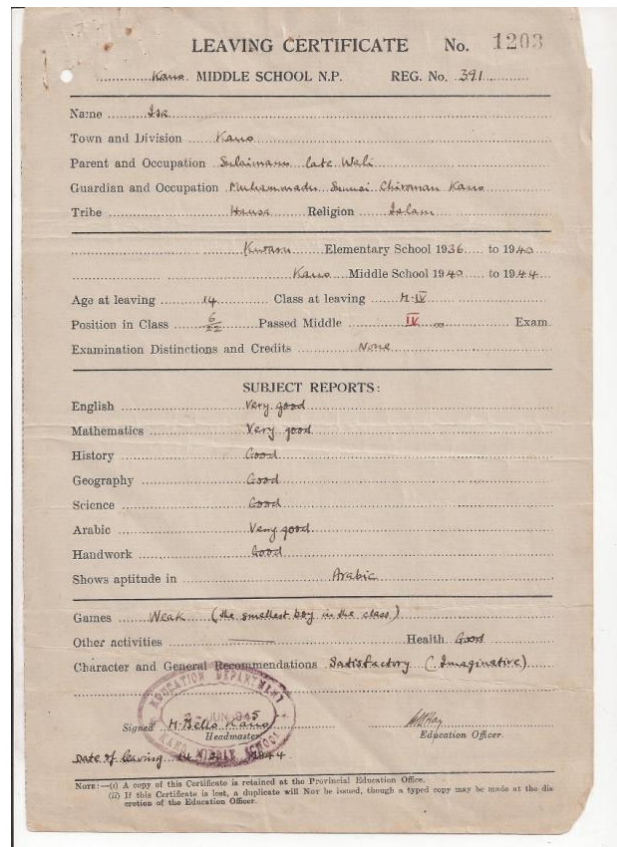 LEAVING CERTIFICATE No. 1203
Kano MIDDLE SCHOOL N.P. REG. No. 391
Name Isa
Town and Division Kano
Parent and Occupation Sulaimanu late Wali
Guardian and Occupation Muhammadu Sunusi Chiroman Kano
Tribe Hausa Religion Islam
Kwaru Elementary School 1936 to 1940
Kano Middle School 1940 to 1944
Age at leaving 14 Class at leaving M.IV
Position in Class 6/22 Passed Middle IV Exam
Examination Distinctions and Credits None
SUBJECT REPORTS:
English Very good
Mathematics Very good
History Good
Geography Good
Science Good
Arabic Very good
Handwork Good
Shows aptitude in Arabic
Games Weak (the smallest boy in the class)
Other activities Health Good
Character and General Recommendations Satisfactory (Imaginative)
EDUCATION DEPARTMENT
JUN 1945
KANO MIDDLE SCHOOL
Signed M. Bello Kano
Headmaster Education Officer.
Date of leaving 1944
NOTE:—(i) A copy of this Certificate is retained at the Provincial Education Office.
(ii) If this Certificate is lost, a duplicate will NOT be issued, though a typed copy may be made at the dis-
cretion of the Education Officer.